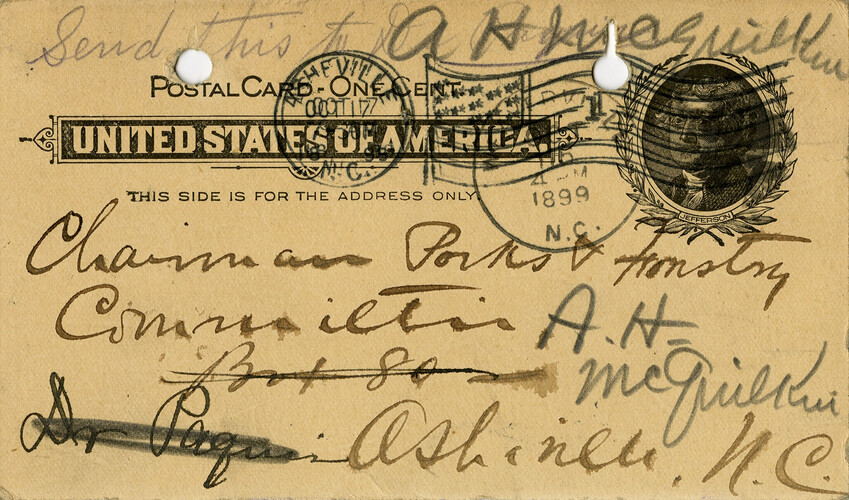 Send this to A H McQuilkin
POSTAL CARD - ONE CENT.
ASHEVILLE
OCT 17
N.C.
UNITED STATES OF AMERICA.
THIS SIDE IS FOR THE ADDRESS ONLY
1899
N.C.
JEFFERSON
Chairman Parks & Forestry
Committee
A. H.
McQuilkin
Box 80
Dr Paquin
Asheville, N.C.